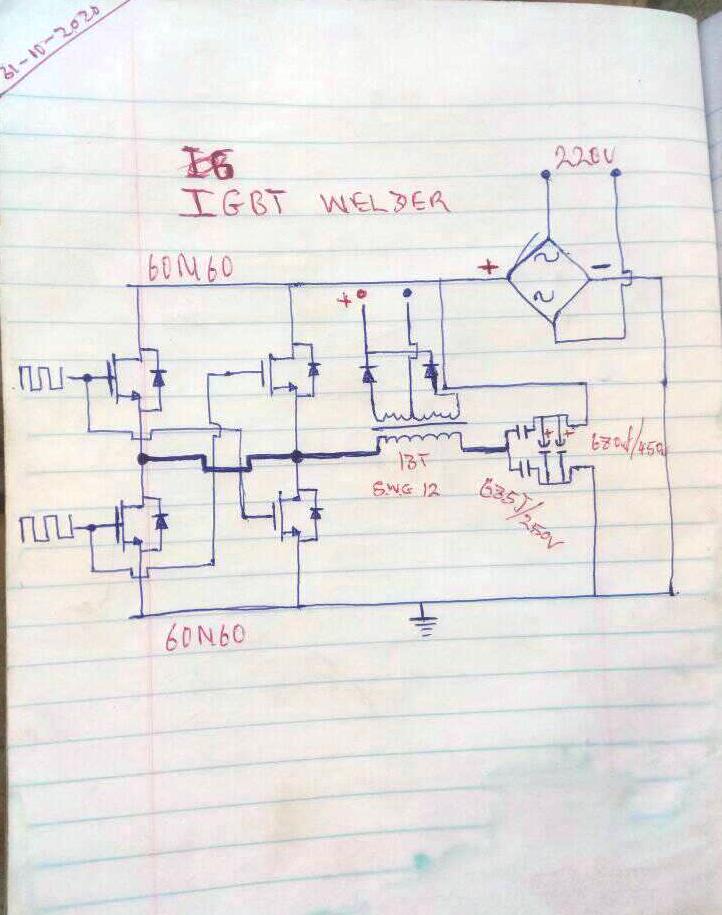 31-10-2020
IG
IGBT WELDER
220V
60N60
+
-
+
13T
S.W.G 12
680uf/450v
685J/250V
60N60